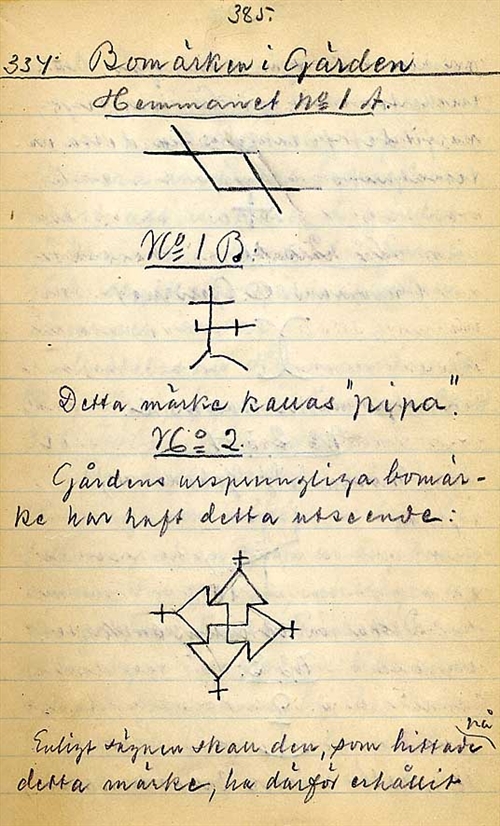 385.
334. Bomärken i Gärden
Hemmanet No 1 A.
No 1 B.
Detta märke kallas "pipa".
No 2.
Gårdens ursprungliga bomär-
ke har haft detta utseende:
på
Enligt sägnen skall den, som hittade
detta märke, ha därför erhållit